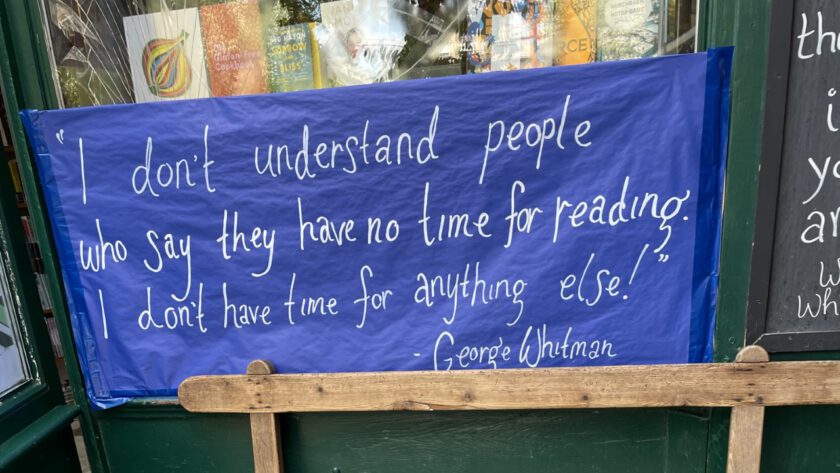 "I don't understand people
who say they have no time for reading.
I don't have time for anything else!"
- George Whitman